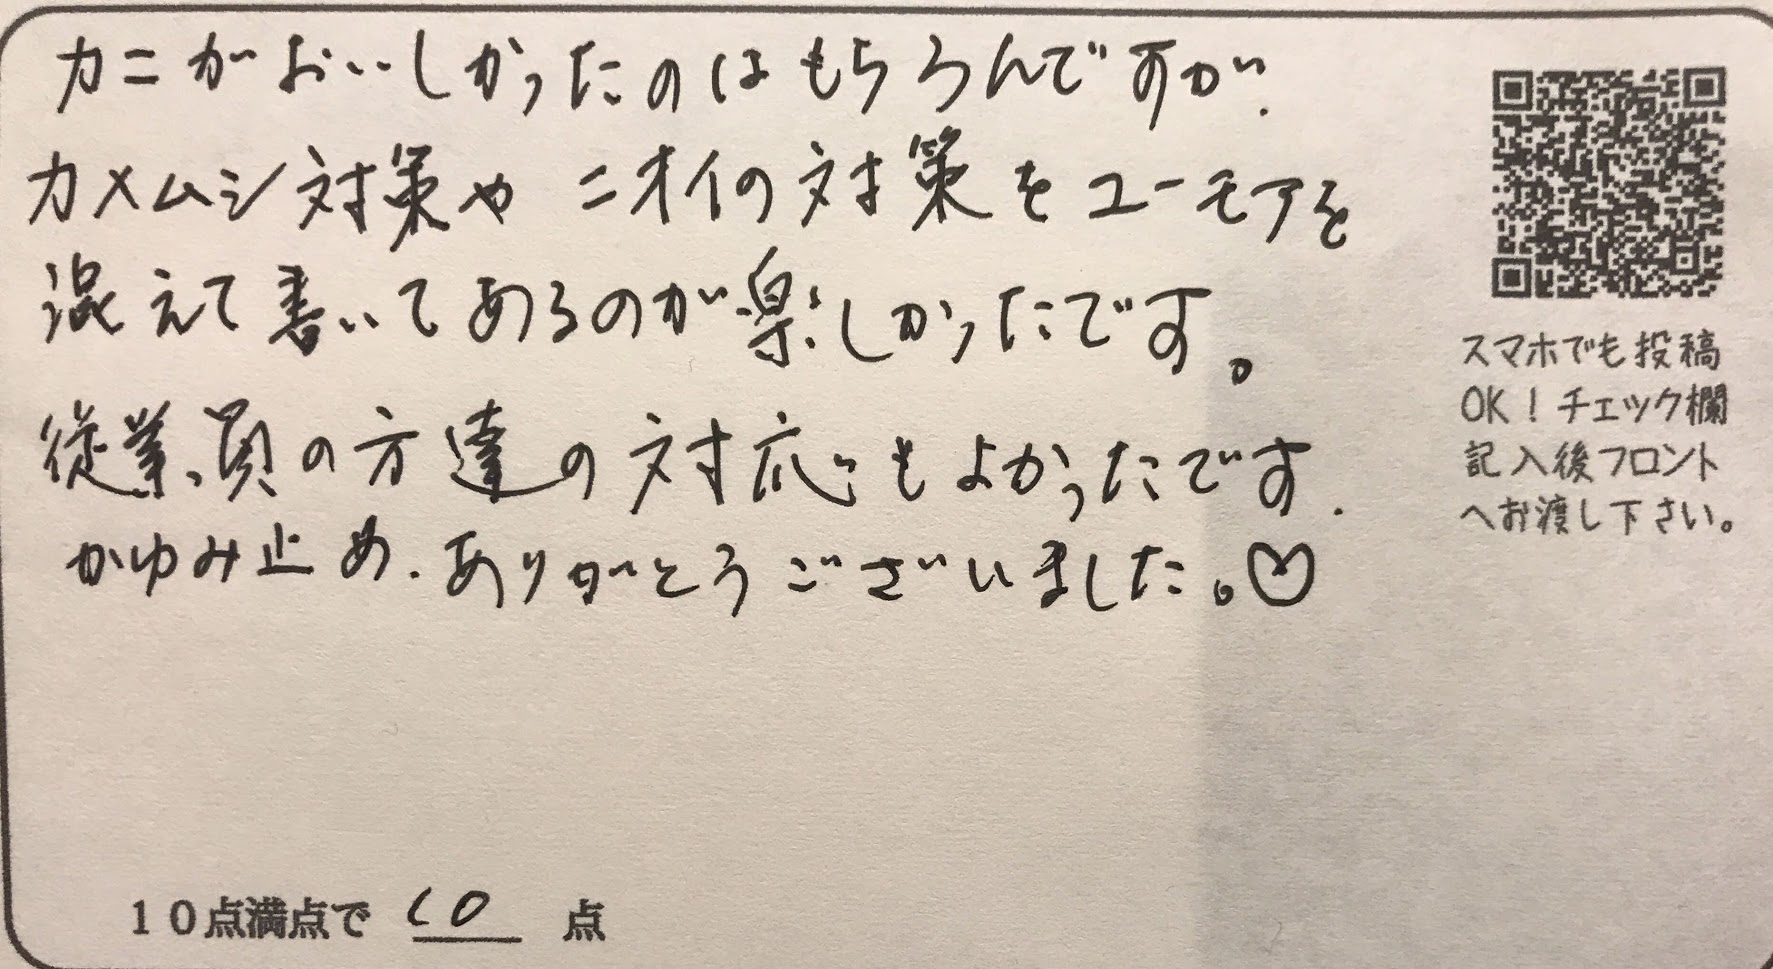 カニがおいしかったのはもちろんですが、
カメムシ対策や ニオイの対策をユーモアを
混えて書いてあるのが楽しかったです。
従業員の方達の対応もよかったです.
かゆみ止め.ありがとうございました。♡
スマホでも投稿
OK！チェック欄
記入後フロント
へお渡し下さい。
10点満点で 10 点